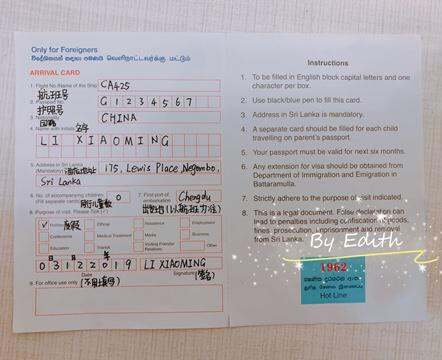 Only for Foreigners
විදේශිකයන් සඳහා පමණයි வெளிநாட்டவர்க்கு மட்டும்
ARRIVAL CARD
1. Flight No./Name of the Ship
CA425
航班号
2. Passport No.
G1234567
护照号
3. Nationality
CHINA
国籍
4. Name with Initials 名字
LI XIAOMING
5. Address in Sri Lanka
(Mandatory)
175, Lewis Place, Negombo,
Sri Lanka
6. No. of accompanying children
0
同行儿童数
7. First port of embarkation
Chengdu
出发地(以航班为准)
8. Purpose of visit. Please Tick (✓)
Holiday 度假
Official
Business
Conference
Medical Treatment
Media
Education
Transit
Visiting Friends/Relatives
03122019
LI XIAOMING
Date
Signature (签名)
9. For office use only (不用填写)
Instructions
1. To be filled in English block capital letters and one
character per box.
2. Use black/blue pen to fill this card.
3. Address in Sri Lanka is mandatory.
4. A separate card should be filled for each child
travelling on parent's passport.
5. Your passport must be valid for next six months.
6. Any extension for visa should be obtained from
Department of Immigration and Emigration in
Battaramulla.
7. Strictly adhere to the purpose of visit indicated.
8. This is a legal document. False declaration can
lead to penalties including confiscation of goods,
fines, prosecution, imprisonment and removal
from Sri Lanka.
By Edith
1962
Hot Line